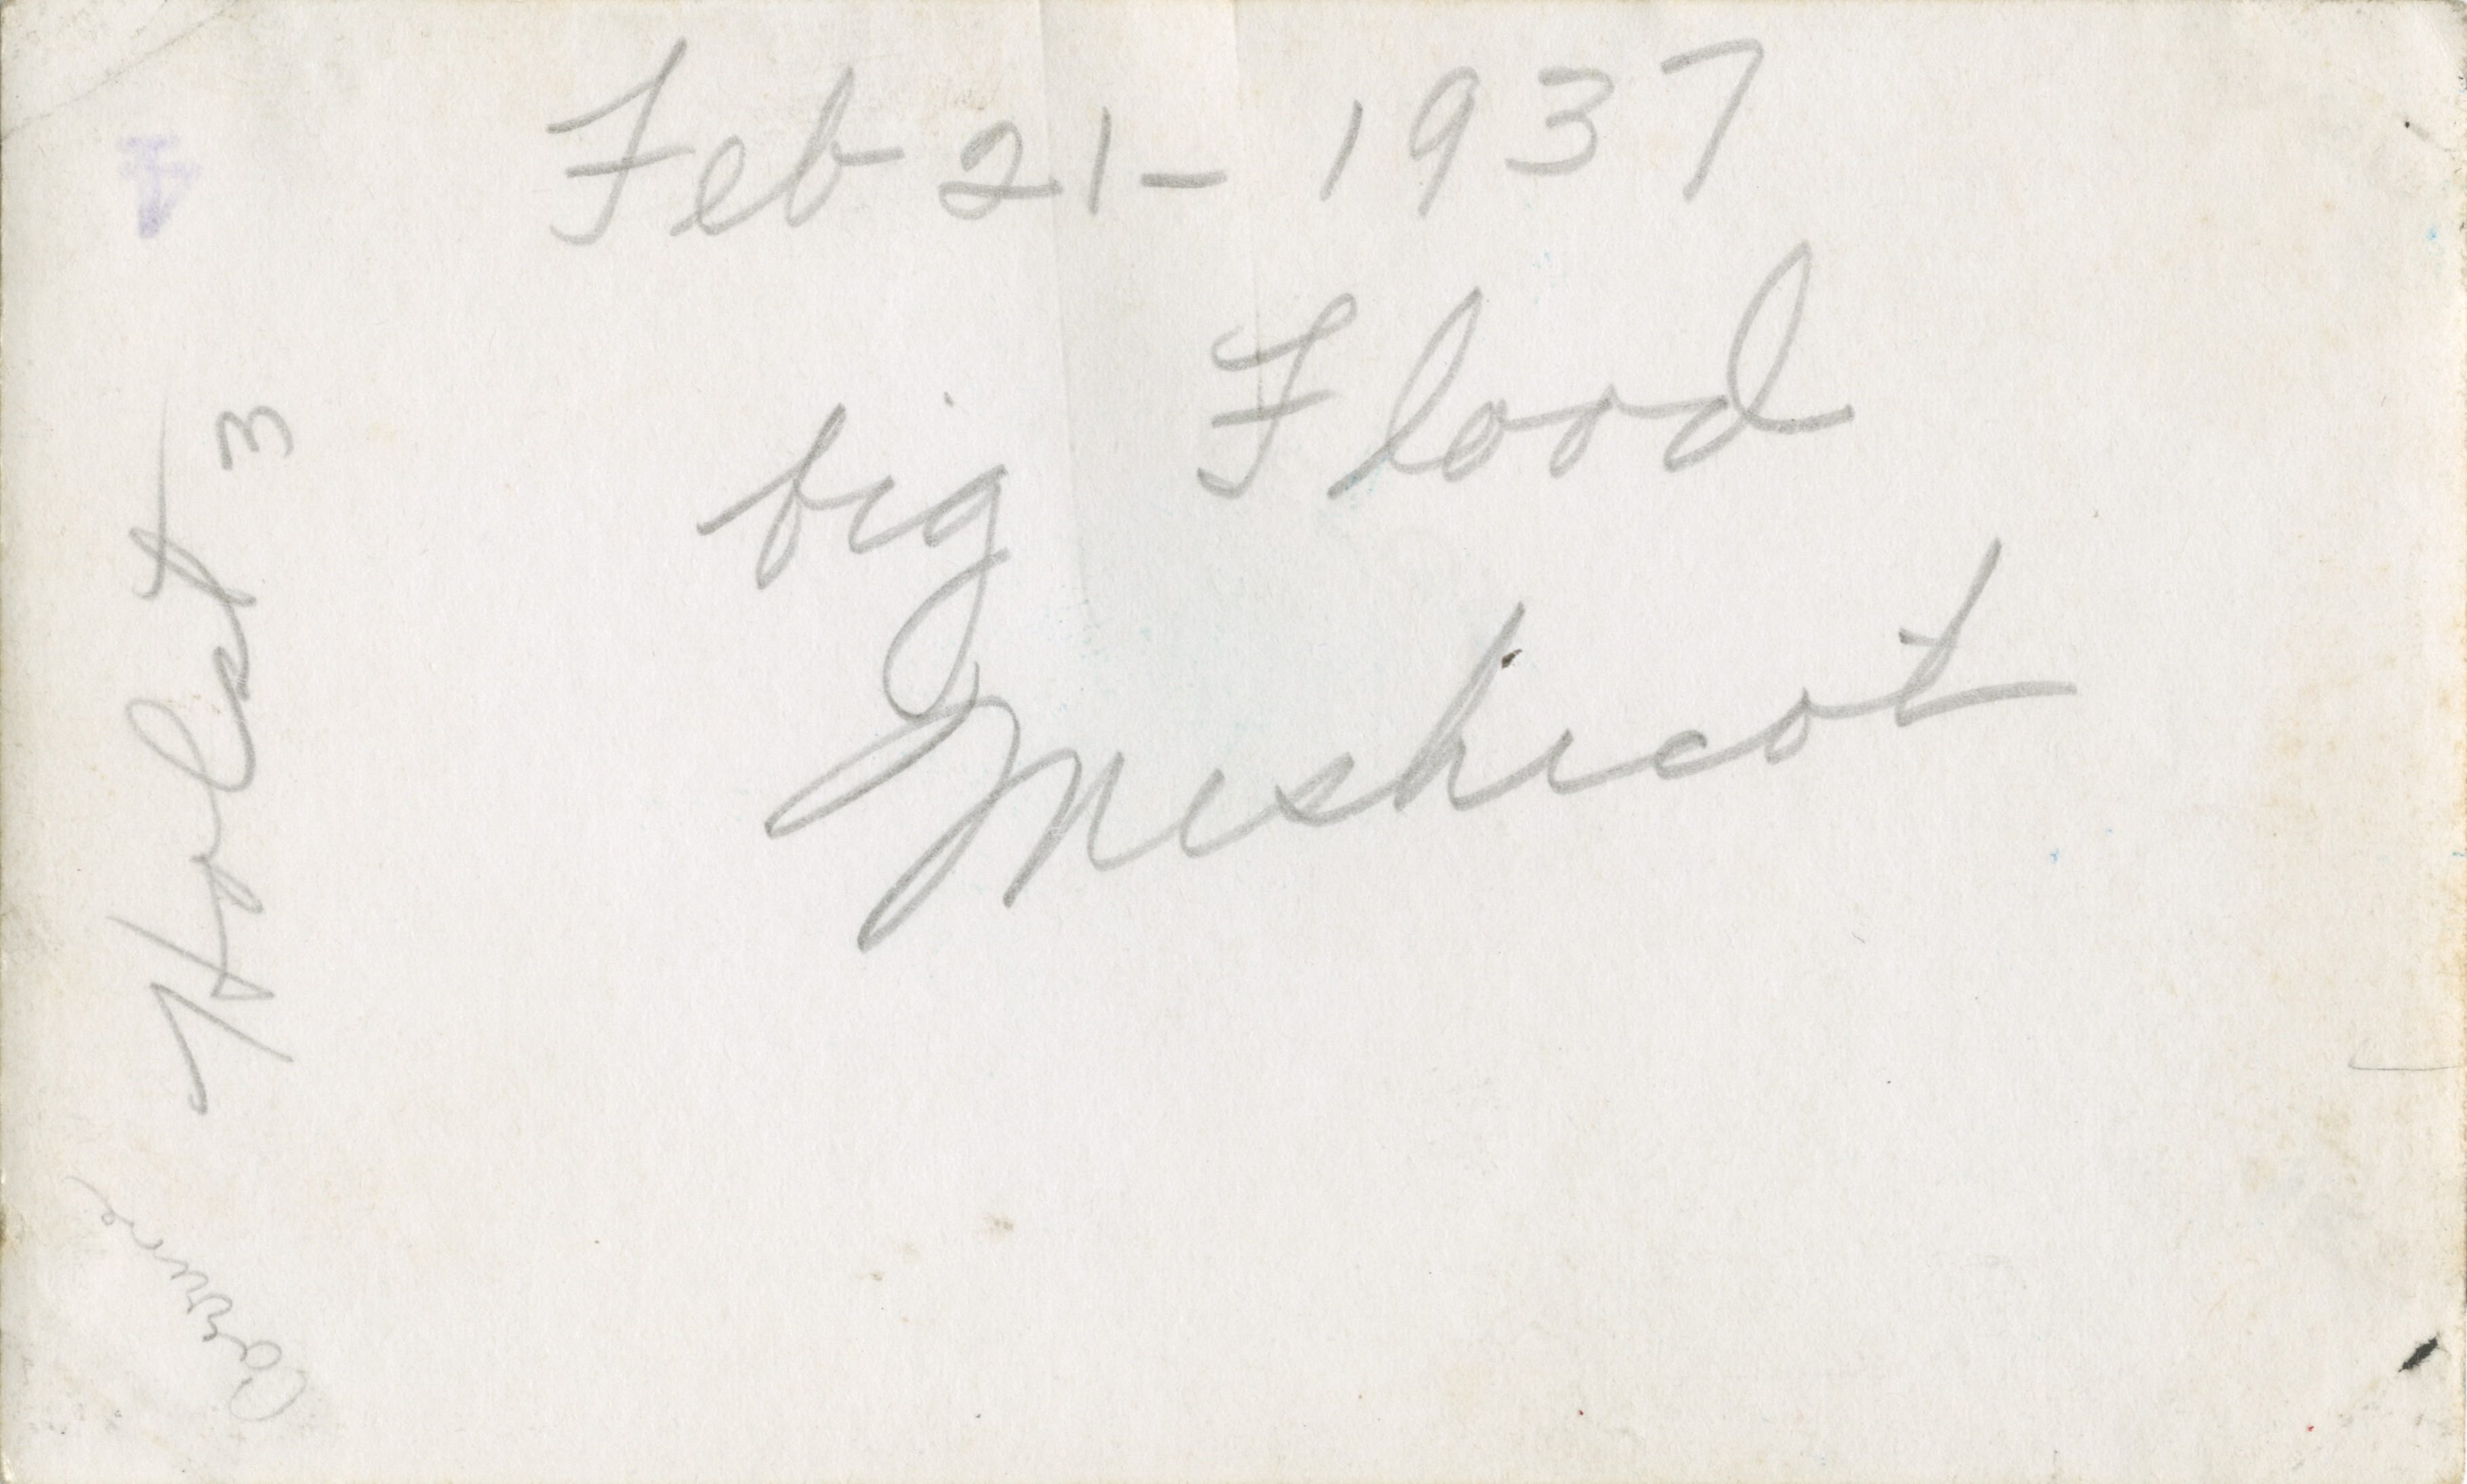 Feb 21- 1937
big Flood
Mishicot
Holst 3
4